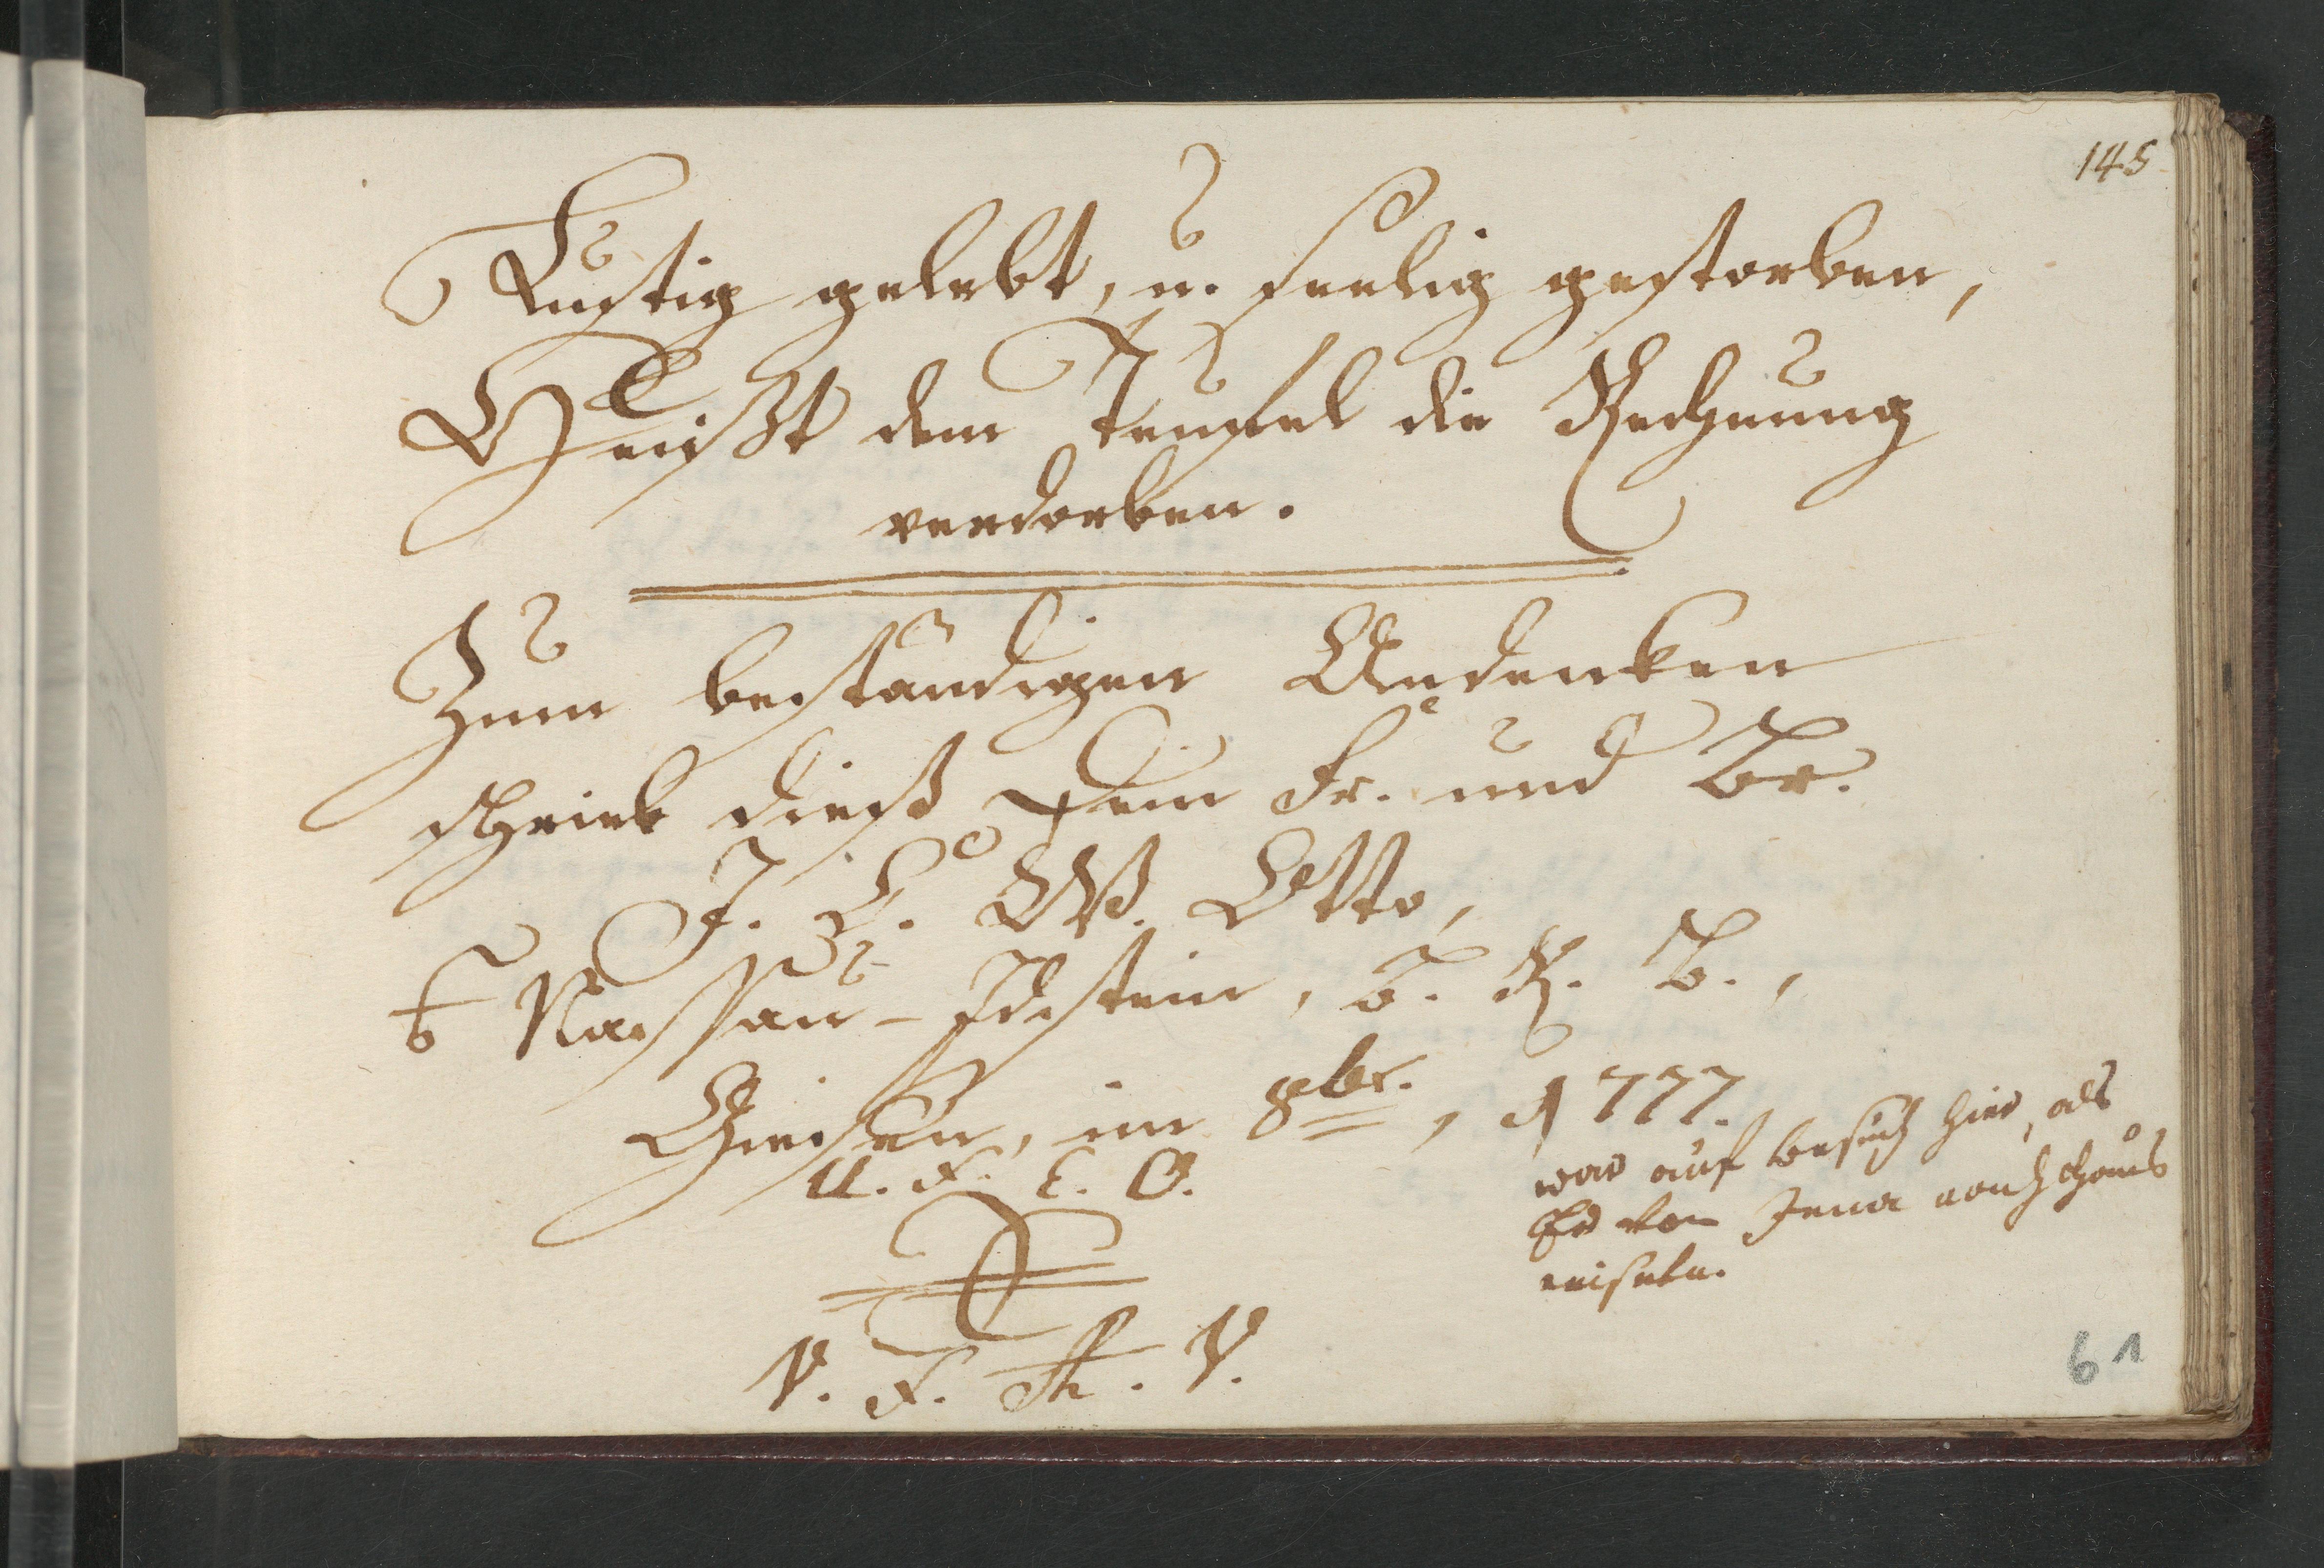 145
Lustig gelebt, u. seelig gestorben,
Heißt dem Teufel die Rechnung
verdorben.
Zum beständigen Andenken
schrieb dieß Dein Fr. und Br.
J. C. W. Otto,
Nassau-Idstein, d. R. B.,
Giesen, im 8br., 1777.
U. F. E. O.
V. F. Th. V.
war auf besuch hier, als
Er von Jena nach Hauß
reisete.
61